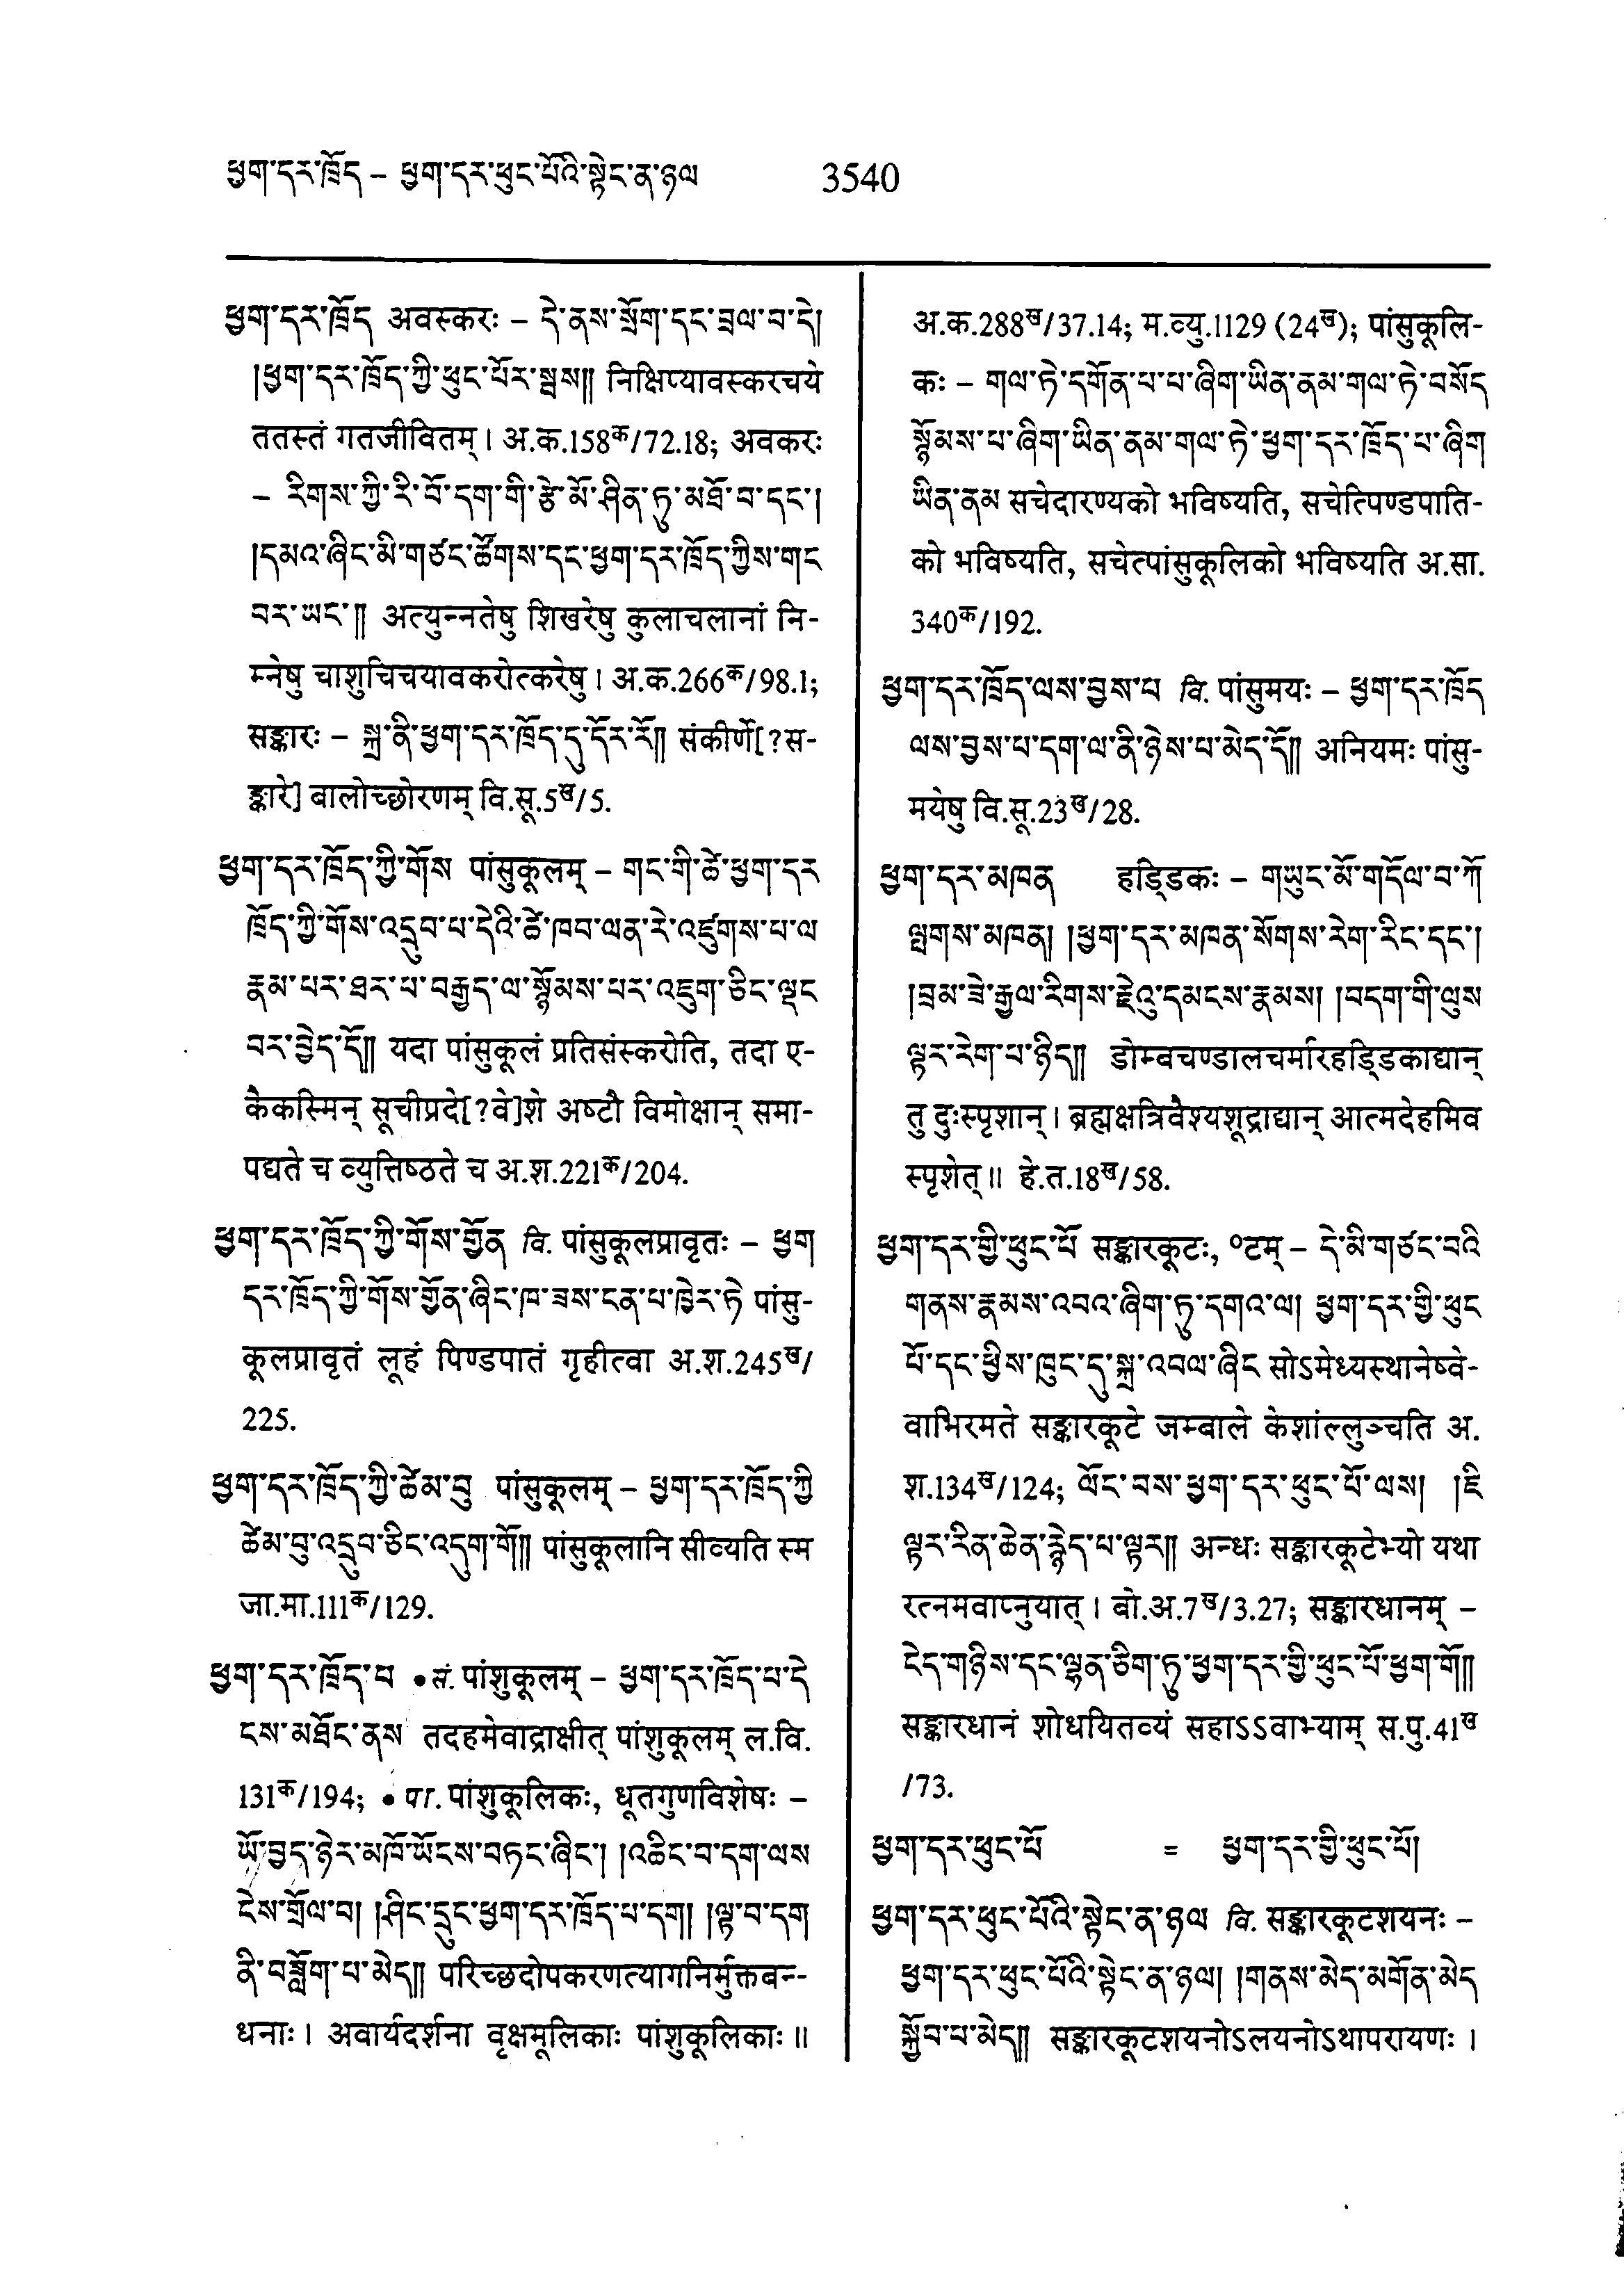 ཕྱག་དར་ཁྲོད – ཕྱག་དར་ཕུང་པོའི་སྟེང་ན་ཉལ 3540
ཕྱག་དར་ཁྲོད अवस्करः – དེ་ནས་སྲོག་དང་བྲལ་བ་དེ།
།ཕྱག་དར་ཁྲོད་ཀྱི་ཕུང་པོར་སྦས༎ निक्षिप्यावस्करचये
ततस्तं गतजीवितम् । अ.क.158क/72.18; अवकरः
– རིགས་ཀྱི་རི་བོ་དག་གི་རྩེ་མོ་ཤིན་ཏུ་མཐོ་བ་དང་།
།དམའ་ཞིང་མི་གཙང་ཚོགས་དང་ཕྱག་དར་ཁྲོད་ཀྱིས་གང
བར་ཡང་༎ अत्युन्नतेषु शिखरेषु कुलाचलानां नि-
म्नेषु चाशुचिचयावकरोत्करेषु । अ.क.266क/98.1;
सङ्कारः – སྐྲ་ནི་ཕྱག་དར་ཁྲོད་དུ་དོར་རོ༎ संकीर्णे[?स-
ङ्कारे] बालोच्छोरणम् वि.सू.5ख/5.
ཕྱག་དར་ཁྲོད་ཀྱི་གོས पांसुकूलम् – གང་གི་ཚེ་ཕྱག་དར
ཁྲོད་ཀྱི་གོས་འདྲུབ་པ་དེའི་ཚེ་ཁབ་ལན་རེ་འཛུགས་པ་ལ
རྣམ་པར་ཐར་པ་བརྒྱད་ལ་སྙོམས་པར་འཇུག་ཅིང་ལྡང
བར་བྱེད་དོ༎ यदा पांसुकूलं प्रतिसंस्करोति, तदा ए-
कैकस्मिन् सूचीप्रदे[?वे]शे अष्टौ विमोक्षान् समा-
पद्यते च व्युत्तिष्ठते च अ.श.221क/204.
ཕྱག་དར་ཁྲོད་ཀྱི་གོས་གྱོན वि. पांसुकूलप्रावृतः – ཕྱག
དར་ཁྲོད་ཀྱི་གོས་གྱོན་ཞིང་ཁ་ཟས་ངན་པ་ཁྱེར་ཏེ पांसु-
कूलप्रावृतं लूहं पिण्डपातं गृहीत्वा अ.श.245ख/
225.
ཕྱག་དར་ཁྲོད་ཀྱི་ཚེམ་བུ पांसुकूलम् – ཕྱག་དར་ཁྲོད་ཀྱི
ཚེམ་བུ་འདྲུབ་ཅིང་འདུག་གོ༎ पांसुकूलानि सीव्यति स्म
जा.मा.111क/129.
ཕྱག་དར་ཁྲོད་པ • सं. पांशुकूलम् – ཕྱག་དར་ཁྲོད་པ་དེ
ངས་མཐོང་ནས तदहमेवाद्राक्षीत् पांशुकूलम् ल.वि.
131क/194; • पा. पांशुकूलिकः, धूतगुणविशेषः –
ཡོ་བྱད་ཉེར་མཁོ་ཡོངས་བཏང་ཞིང་། །འཆིང་བ་དག་ལས
ངེས་གྲོལ་བ། །ཤིང་དྲུང་ཕྱག་དར་ཁྲོད་པ་དག། །ལྟ་བ་དག
ནི་བཟློག་པ་མེད༎ परिच्छदोपकरणत्यागनिर्मुक्तबन्-
धनाः । अवार्यदर्शना वृक्षमूलिकाः पांशुकूलिकाः ॥
अ.क.288ख/37.14; म.व्यु.1129 (24ख); पांसुकूलि-
कः – གལ་ཏེ་དགོན་པ་པ་ཞིག་ཡིན་ནམ་གལ་ཏེ་བསོད
སྙོམས་པ་ཞིག་ཡིན་ནམ་གལ་ཏེ་ཕྱག་དར་ཁྲོད་པ་ཞིག
ཡིན་ནམ सचेदारण्यको भविष्यति, सचेत्पिण्डपाति-
को भविष्यति, सचेत्पांसुकूलिको भविष्यति अ.सा.
340क/192.
ཕྱག་དར་ཁྲོད་ལས་བྱས་པ वि. पांसुमयः – ཕྱག་དར་ཁྲོད
ལས་བྱས་པ་དག་ལ་ནི་ཉེས་པ་མེད་དོ༎ अनियमः पांसु-
मयेषु वि.सू.23ख/28.
ཕྱག་དར་མཁན हड्डिकः – གཡུང་མོ་གདོལ་བ་ཀོ
ལྤགས་མཁན། །ཕྱག་དར་མཁན་སོགས་རེག་རིང་དང་།
།བྲམ་ཟེ་རྒྱལ་རིགས་རྗེའུ་དམངས་རྣམས། །བདག་གི་ལུས
ལྟར་རེག་པ་ཉིད༎ डोम्बचण्डालचर्मारहड्डिकाद्यान्
तु दुःस्पृशान् । ब्रह्मक्षत्रिवैश्यशूद्राद्यान् आत्मदेहमिव
स्पृशेत् ॥ हे.त.18ख/58.
ཕྱག་དར་གྱི་ཕུང་པོ सङ्कारकूटः, ०टम् – དེ་མི་གཙང་བའི
གནས་རྣམས་འབའ་ཞིག་ཏུ་དགའ་ལ། ཕྱག་དར་གྱི་ཕུང
པོ་དང་ཕྱིས་ཁུང་དུ་སྐྲ་འབལ་ཞིང सोऽमेध्यस्थानेष्वे-
वाभिरमते सङ्कारकूटे जम्बाले केशांल्लुञ्चति अ.
श.134ख/124; ལོང་བས་ཕྱག་དར་ཕུང་པོ་ལས། །ཇི
ལྟར་རིན་ཆེན་རྙེད་པ་ལྟར༎ अन्धः सङ्कारकूटेभ्यो यथा
रत्नमवाप्नुयात् । बो.अ.7ख/3.27; सङ्कारधानम् –
ངེད་གཉིས་དང་ལྷན་ཅིག་ཏུ་ཕྱག་དར་གྱི་ཕུང་པོ་ཕྱག་གོ༎
सङ्कारधानं शोधयितव्यं सहाऽऽवाभ्याम् स.पु.41ख
/73.
ཕྱག་དར་ཕུང་པོ = ཕྱག་དར་གྱི་ཕུང་པོ།
ཕྱག་དར་ཕུང་པོའི་སྟེང་ན་ཉལ वि. सङ्कारकूटशयनः –
ཕྱག་དར་ཕུང་པོའི་སྟེང་ན་ཉལ། །གནས་མེད་མགོན་མེད
སྐྱོབ་པ་མེད༎ सङ्कारकूटशयनोऽलयनोऽथापरायणः ।